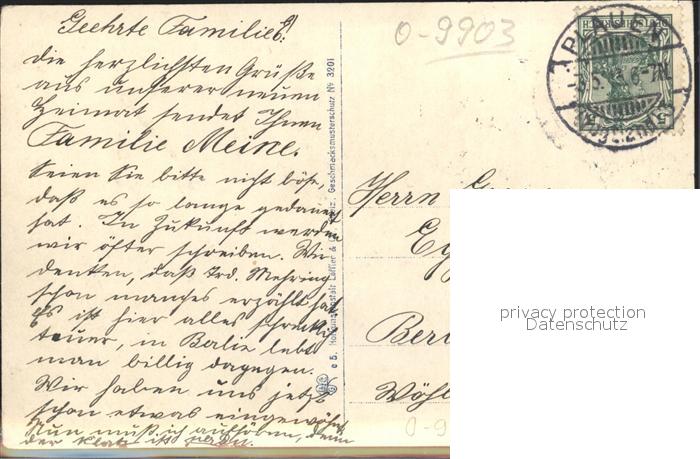 Geehrte Familie!
O-9903
PLAUEN
die herzlichsten Grüße
aus unserer neuen
Heimat sendet Ihnen
Familie Meine.
Seien Sie bitte nicht böse,
daß es so lange gedauert
hat. In Zukunft werden
wir öfter schreiben. Wir
denken, daß Frd. Mehring
schon manches erzählt hat
Es ist hier alles schrecklich
teuer, in Berlin lebt
man billig dagegen.
Wir haben uns jetzt
schon etwas eingewöhnt
Nun muß ich aufhören, denn
der Platz ist
Geschmacksmusterschutz No 3201
Herrn
Berl
Wöhl
O-9
privacy protection
Datenschutz